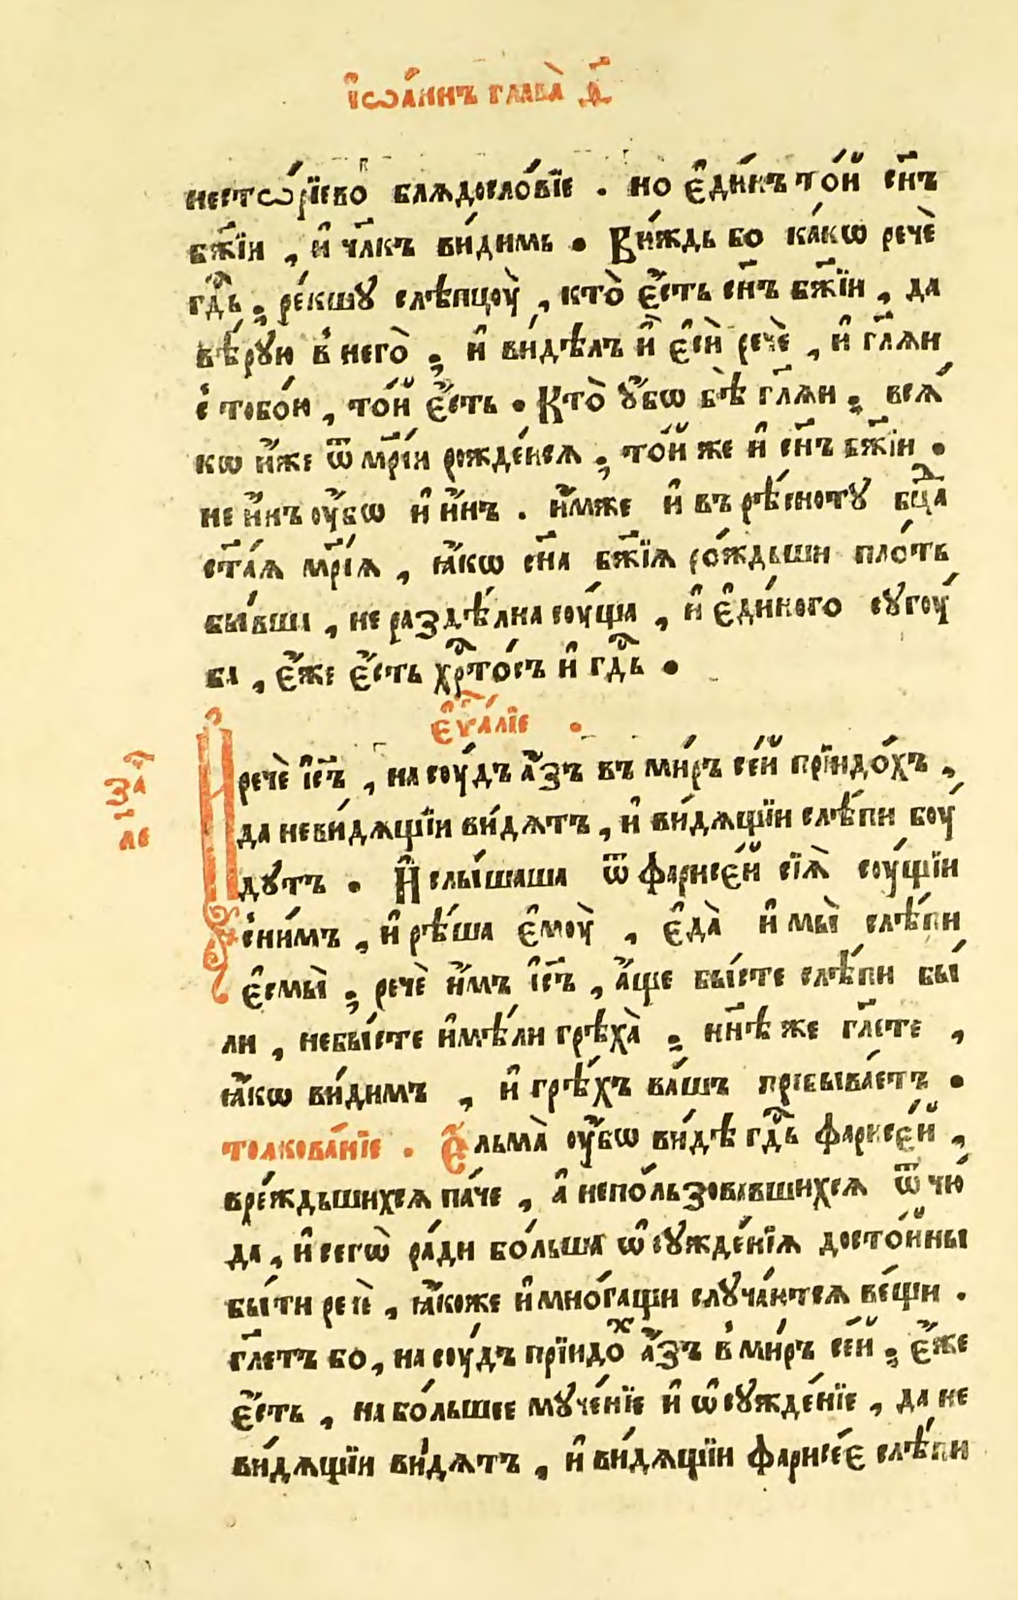 і҆ѡа́ннъ глава̀ д҃
нестѡ́рїево блѧдосло́вїе . но є҆ди́нъ то́й сн҃ъ
бж҃їи , и҆ чл҃къ ви́димь . Ви́ждь бо ка́кѡ речѐ
гдⷭ҇ь ; ре́кшꙋ слѣпцоу̀ , кто̀ є҆́сть сн҃ъ бж҃їи , да
вѣ́рꙋю в него̀ ; и҆ ви́дѣлъ и҆̀ є҆сѝ речѐ , и҆ гл҃ѧи
с тобо́ю , то́й є҆́сть . Кто̀ ᲂу҆́бѡ бѣ̀ гл҃ѧи ; всѧ́
кѡ и҆́же ѿ мр҃і́и рожде́йсѧ ; то́й же и҆ сн҃ъ бж҃їи .
не и҆́нъ оу҆́бѡ и҆ и҆́нъ . и҆́мже и҆ въ рѣ́снотꙋ бцⷣа
ст҃а́ѧ мр҃і́ѧ , ꙗ҆́кѡ сн҃а бж҃їѧ ро́ждьши пло́ть
бы́вша , не раздѣ́лна соу́ща , и҆ є҆ди́ного сꙋгоу́
ба , є҆́же є҆́сть хрⷭ҇то́съ и҆ гдⷭ҇ь .
є҆ѵⷢ҇а́лїе .
заⷱ҇
л҃е
И речѐ і҆с҃ъ , на соу́дъ а҆́зъ въ ми́ръ се́й прїидо́хъ ,
да неви́дѧщїи ви́дѧтъ , и҆ ви́дѧщїи слѣ́пи боу́
дꙋтъ . И҆ слы́шаша ѿ фарисе́й сїѧ̀ соу́щїи
сни́мъ , и҆ рѣ́ша є҆моу̀ , є҆да̀ и҆ мы̀ слѣ́пи
є҆смы̀ ; речѐ и҆́мъ і҆с҃ъ , а҆́ще бы́сте слѣ́пи бы́
ли , небы́сте и҆мѣ́ли грѣха̀ ; нн҃ѣ же гл҃ете ,
ꙗ҆́кѡ ви́димъ , и҆ грѣ́хъ ва́шъ пребыва́етъ .
толкова́нїе . Є҆льма̀ оу҆́бѡ ви́дѣ гдⷭ҇ь фарисе́й ,
вре́ждьшихсѧ па́че , а҆ непо́льзовавшихсѧ ѿ чю́
да , и҆ сегѡ̀ ра́ди бо́льша ѡ҆сꙋжде́нїѧ досто́йны
бы́ти речѐ , ꙗ҆́коже и҆ мно́гащи слꙋча́ютсѧ ве́щи .
гл҃етъ бо , на соу́дъ прїидоⷯ а҆́зъ в ми́ръ се́й ; є҆́же
є҆́сть , на бо́льшее мꙋче́нїе и҆ ѡ҆сꙋжде́нїе , да не
ви́дѧщїи ви́дѧтъ , и҆ ви́дѧщїи фарисе́е слѣ́пи